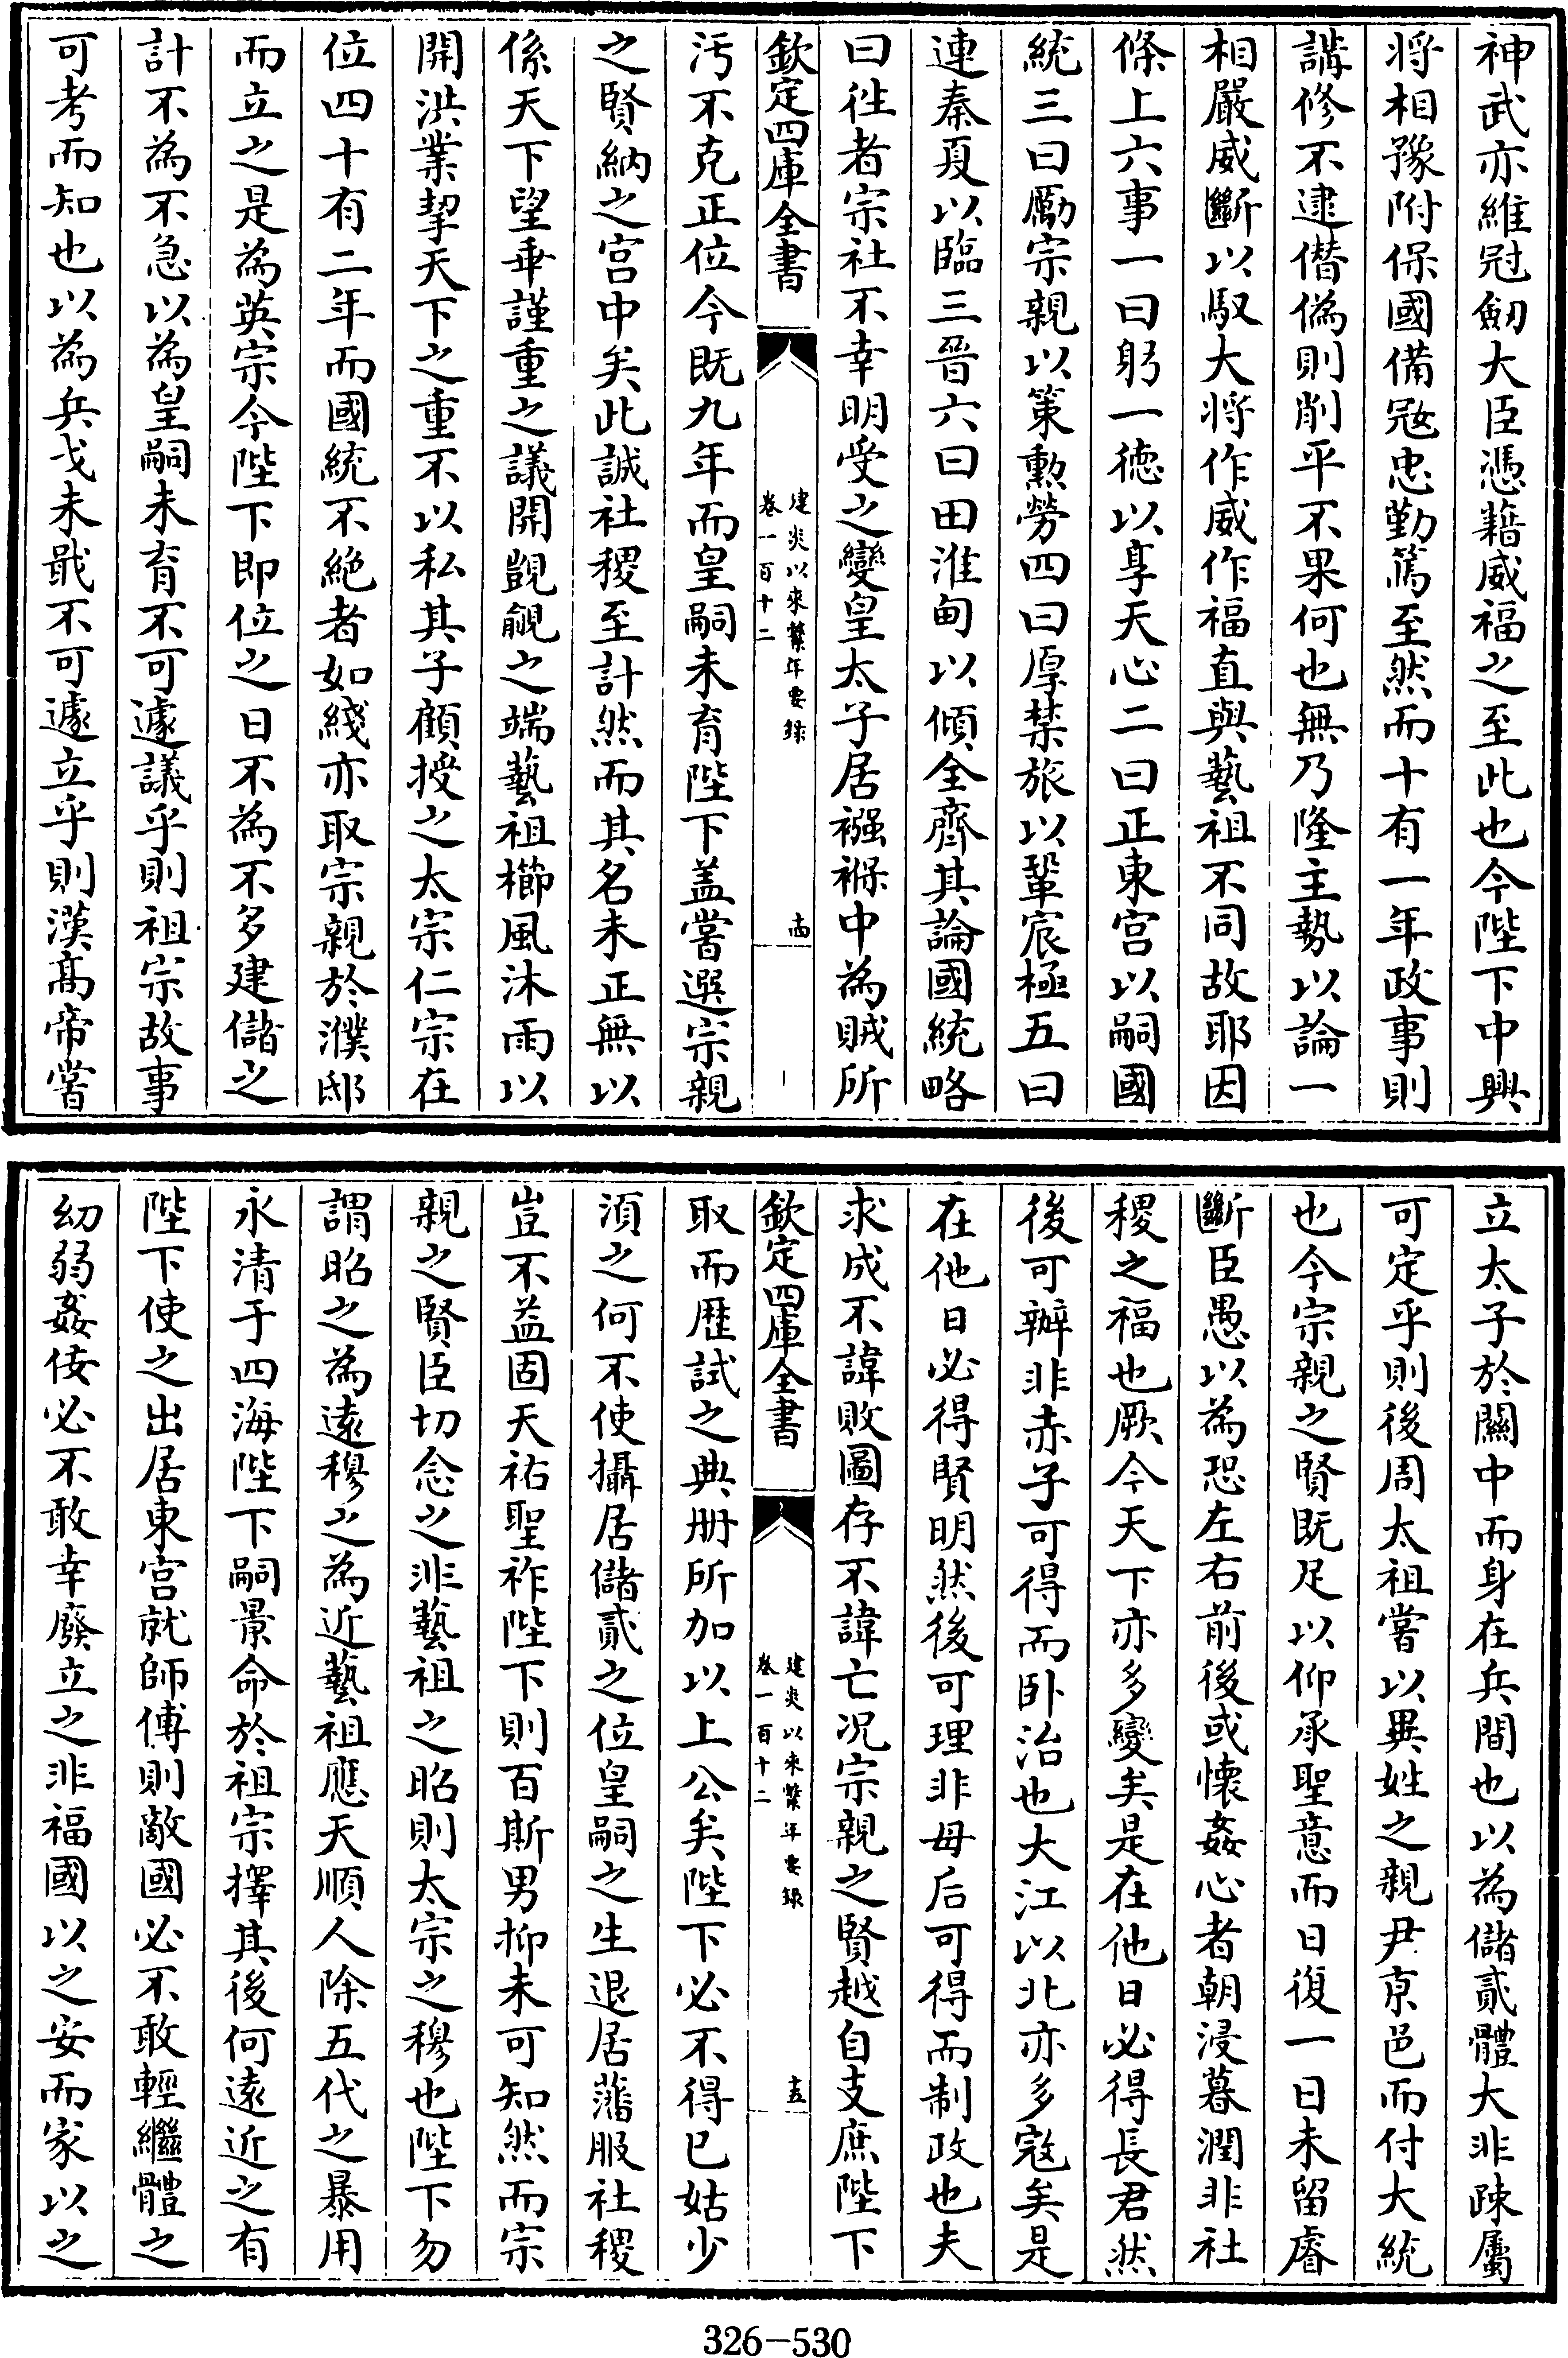 神武亦維冠劒大臣憑藉威福之至此也今陛下中興
将相豫附保國備冦忠勤篤至然而十有一年政事則
講修不逮僭偽則削平不果何也無乃隆主勢以論一
相嚴威斷以馭大将作威作福直與藝祖不同故耶因
條上六事一曰躬一徳以享天心二曰正東宫以嗣國
統三曰勵宗親以策勲勞四曰厚禁旅以鞏宸極五曰
連秦夏以臨三晉六曰田淮甸以傾全齊其論國統略
曰徃者宗社不幸明受之變皇太子居襁褓中為賊所
欽定四庫全書
建炎以來繫年要録
卷一百十二
十四
汚不克正位今既九年而皇嗣未育陛下盖嘗選宗親
之賢納之宫中矣此誠社稷至計然而其名未正無以
係天下望垂謹重之議開覬覦之端藝祖櫛風沐雨以
開洪業挈天下之重不以私其子顧授之太宗仁宗在
位四十有二年而國統不絶者如綫亦取宗親於濮邸
而立之是為英宗今陛下即位之日不為不多建儲之
計不為不急以為皇嗣未育不可遽議乎則祖宗故事
可考而知也以為兵戈未戢不可遽立乎則漢髙帝嘗
立太子於關中而身在兵間也以為儲貳體大非疎屬
可定乎則後周太祖嘗以異姓之親尹京邑而付大統
也今宗親之賢既足以仰承聖意而日復一日未留睿
斷臣愚以為恐左右前後或懐姦心者朝浸暮潤非社
稷之福也厥今天下亦多變矣是在他日必得長君然
後可辦非赤子可得而卧治也大江以北亦多寇矣是
在他日必得賢明然後可理非母后可得而制政也夫
求成不諱敗圖存不諱亡况宗親之賢越自支庶陛下
欽定四庫全書
建炎以來繫年要録
卷一百十二
十五
取而歴試之典册所加以上公矣陛下必不得已姑少
須之何不使攝居儲貳之位皇嗣之生退居藩服社稷
豈不益固天祐聖祚陛下則百斯男抑未可知然而宗
親之賢臣切念之非藝祖之昭則太宗之穆也陛下勿
謂昭之為逺穆之為近藝祖應天順人除五代之暴用
永清于四海陛下嗣景命於祖宗擇其後何逺近之有
陛下使之出居東宫就師傅則敵國必不敢輕繼體之
幼弱姦佞必不敢幸廢立之非福國以之安而家以之
326-530